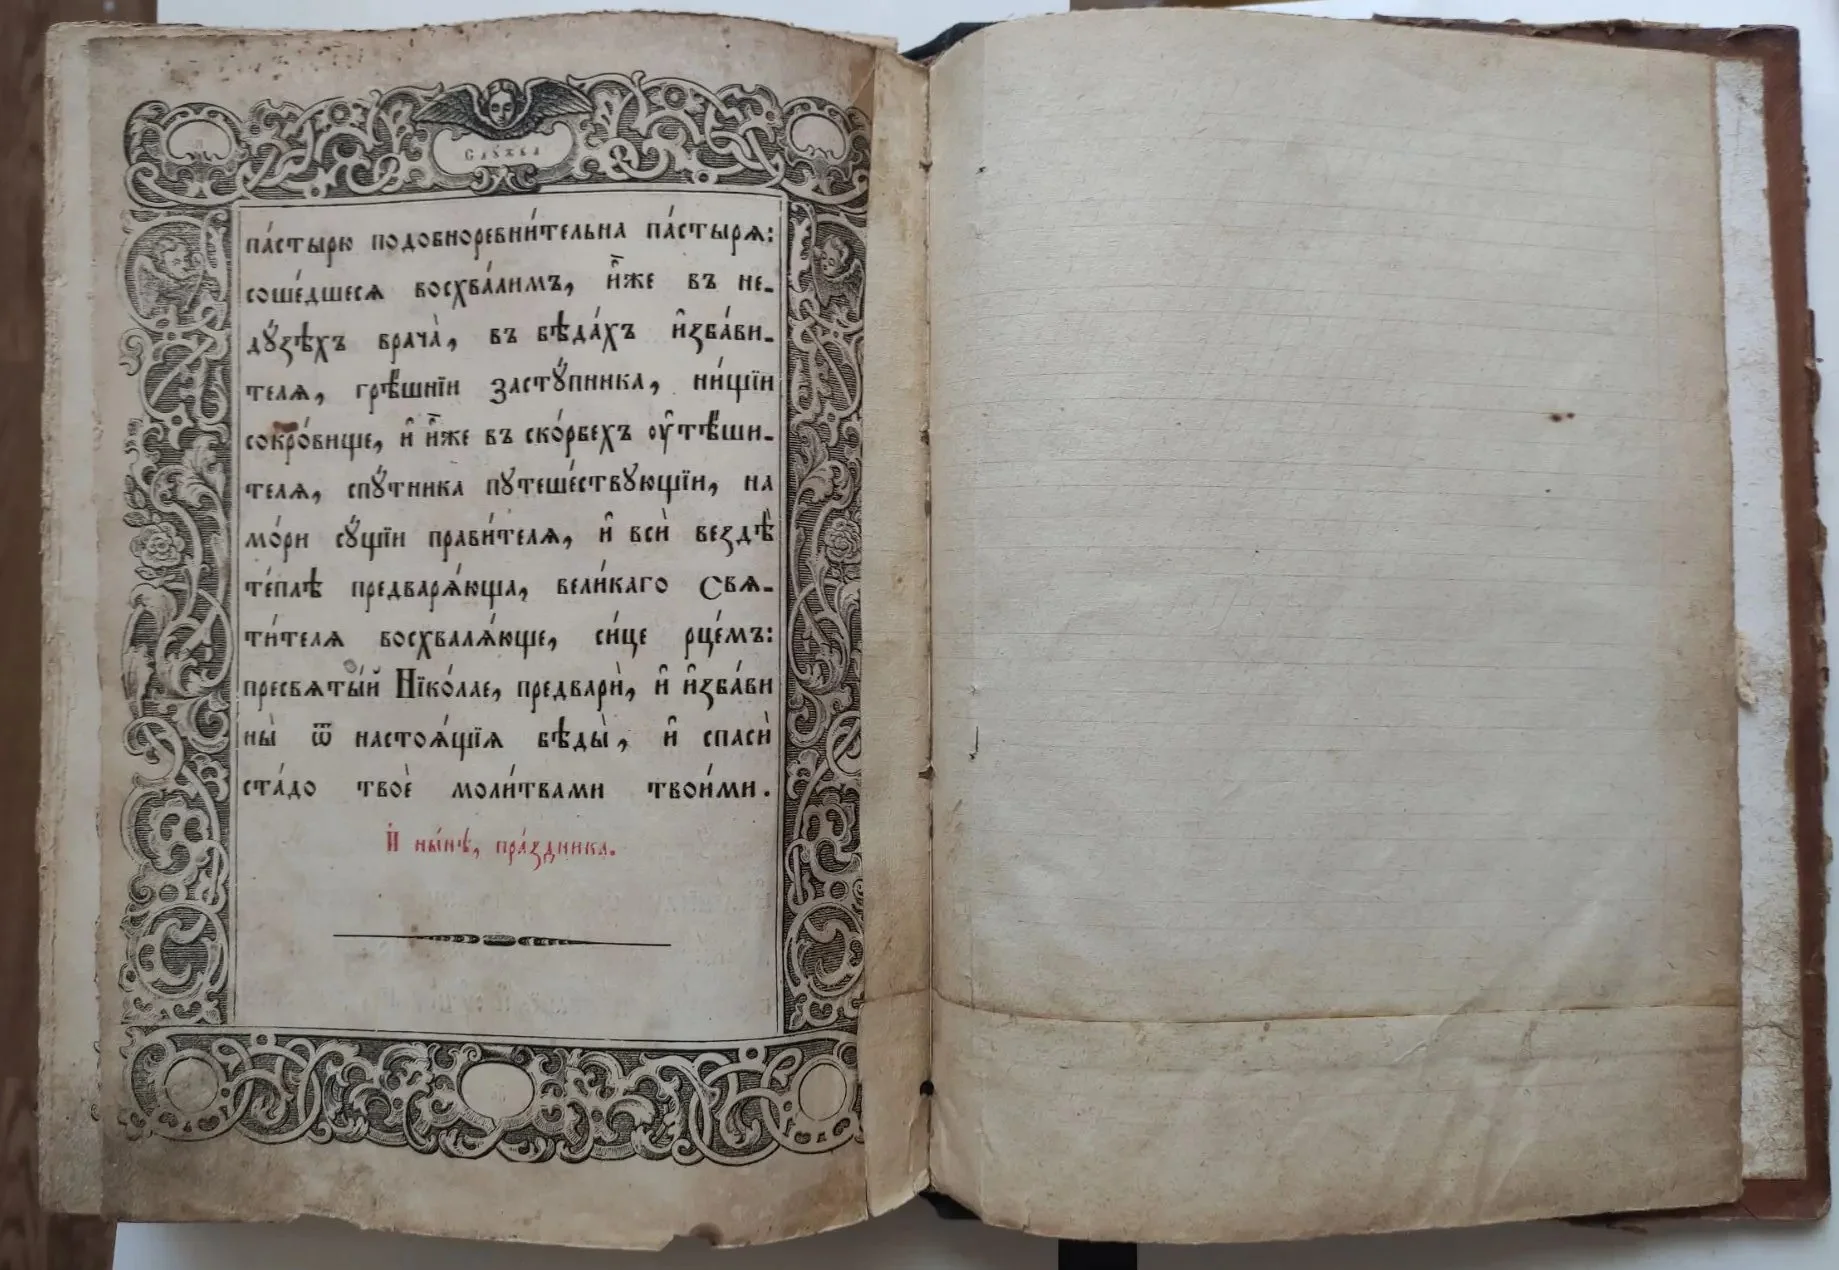 Слꙋжба
па́стырю подобноревни́тельна па́стырѧ:
соше́дшесѧ восхва́лимъ, и҆́же въ не-
дꙋ́зѣхъ врача̀, въ бѣда́хъ и҆зба́ви-
телѧ, грѣ́шнїи застꙋ́пника, ни́щїи
сокро́вище, и҆ и҆́же въ ско́рбехъ ᲂу҆тѣ́ши-
телѧ, спꙋ́тника пꙋтеше́ствꙋющїи, на
мо́ри сꙋ́щїи прави́телѧ, и҆ всѝ вездѣ̀
те́плѣ предварѧ́юща, вели́каго Свѧ-
ти́телѧ восхвалѧ́юще, си́це рце́мъ:
пресвѧты́й Нїко́лае, предварѝ, и҆ и҆зба́ви
ны̀ ѿ настоѧ́щїѧ бѣды̀, и҆ спасѝ
ста́до твоѐ моли́твами твои́ми.
И҆ ны́нѣ, пра́здника.